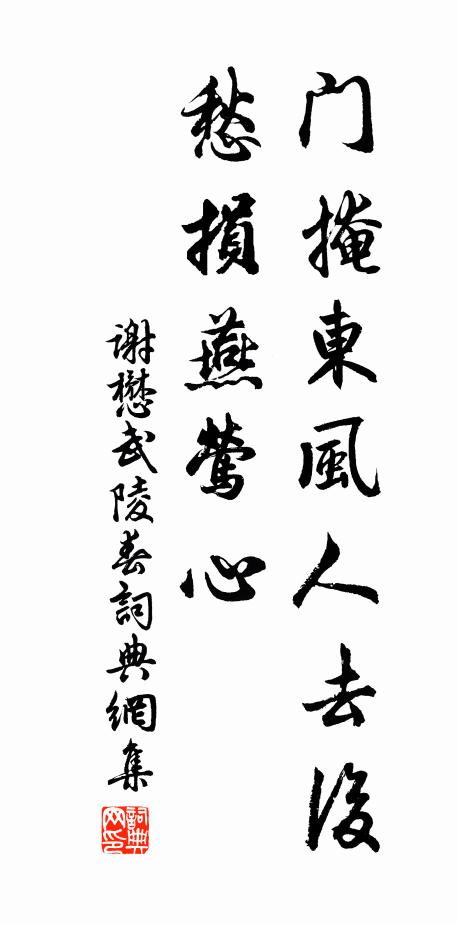 门掩東風人去後
愁損燕鶯心
謝懋武陵春詞典網集
詞典网印